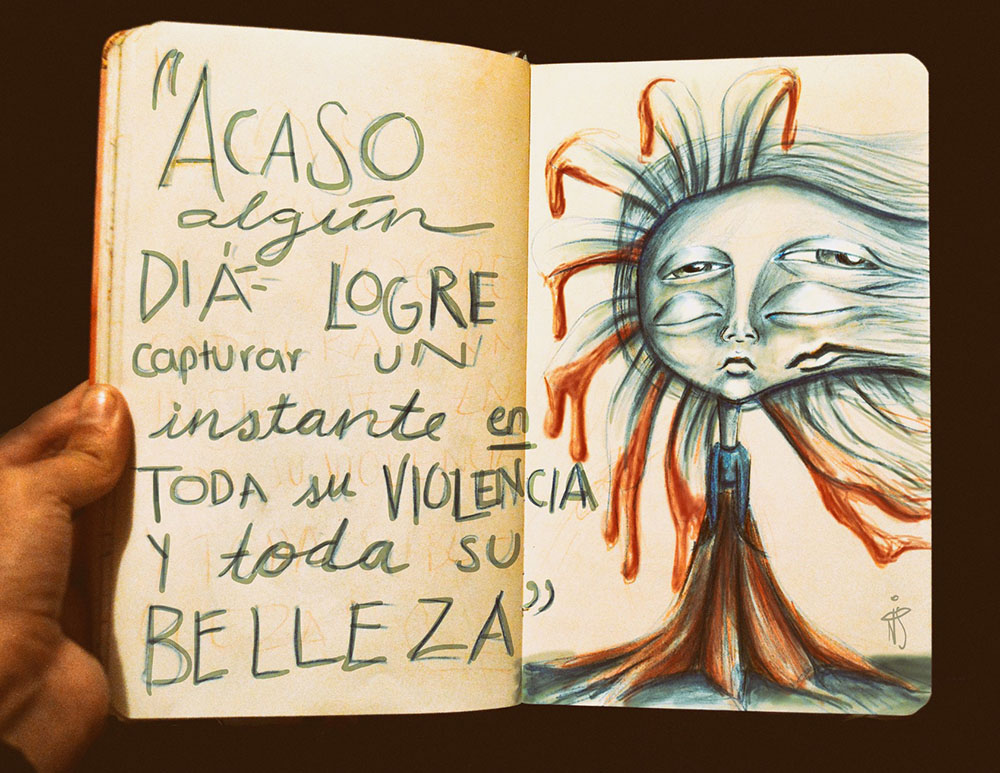 "ACASO
algún
DIÁ- LOGRE
capturar UN
instante en
TODA su VIOLENCIA
Y toda SU
BELLEZA"